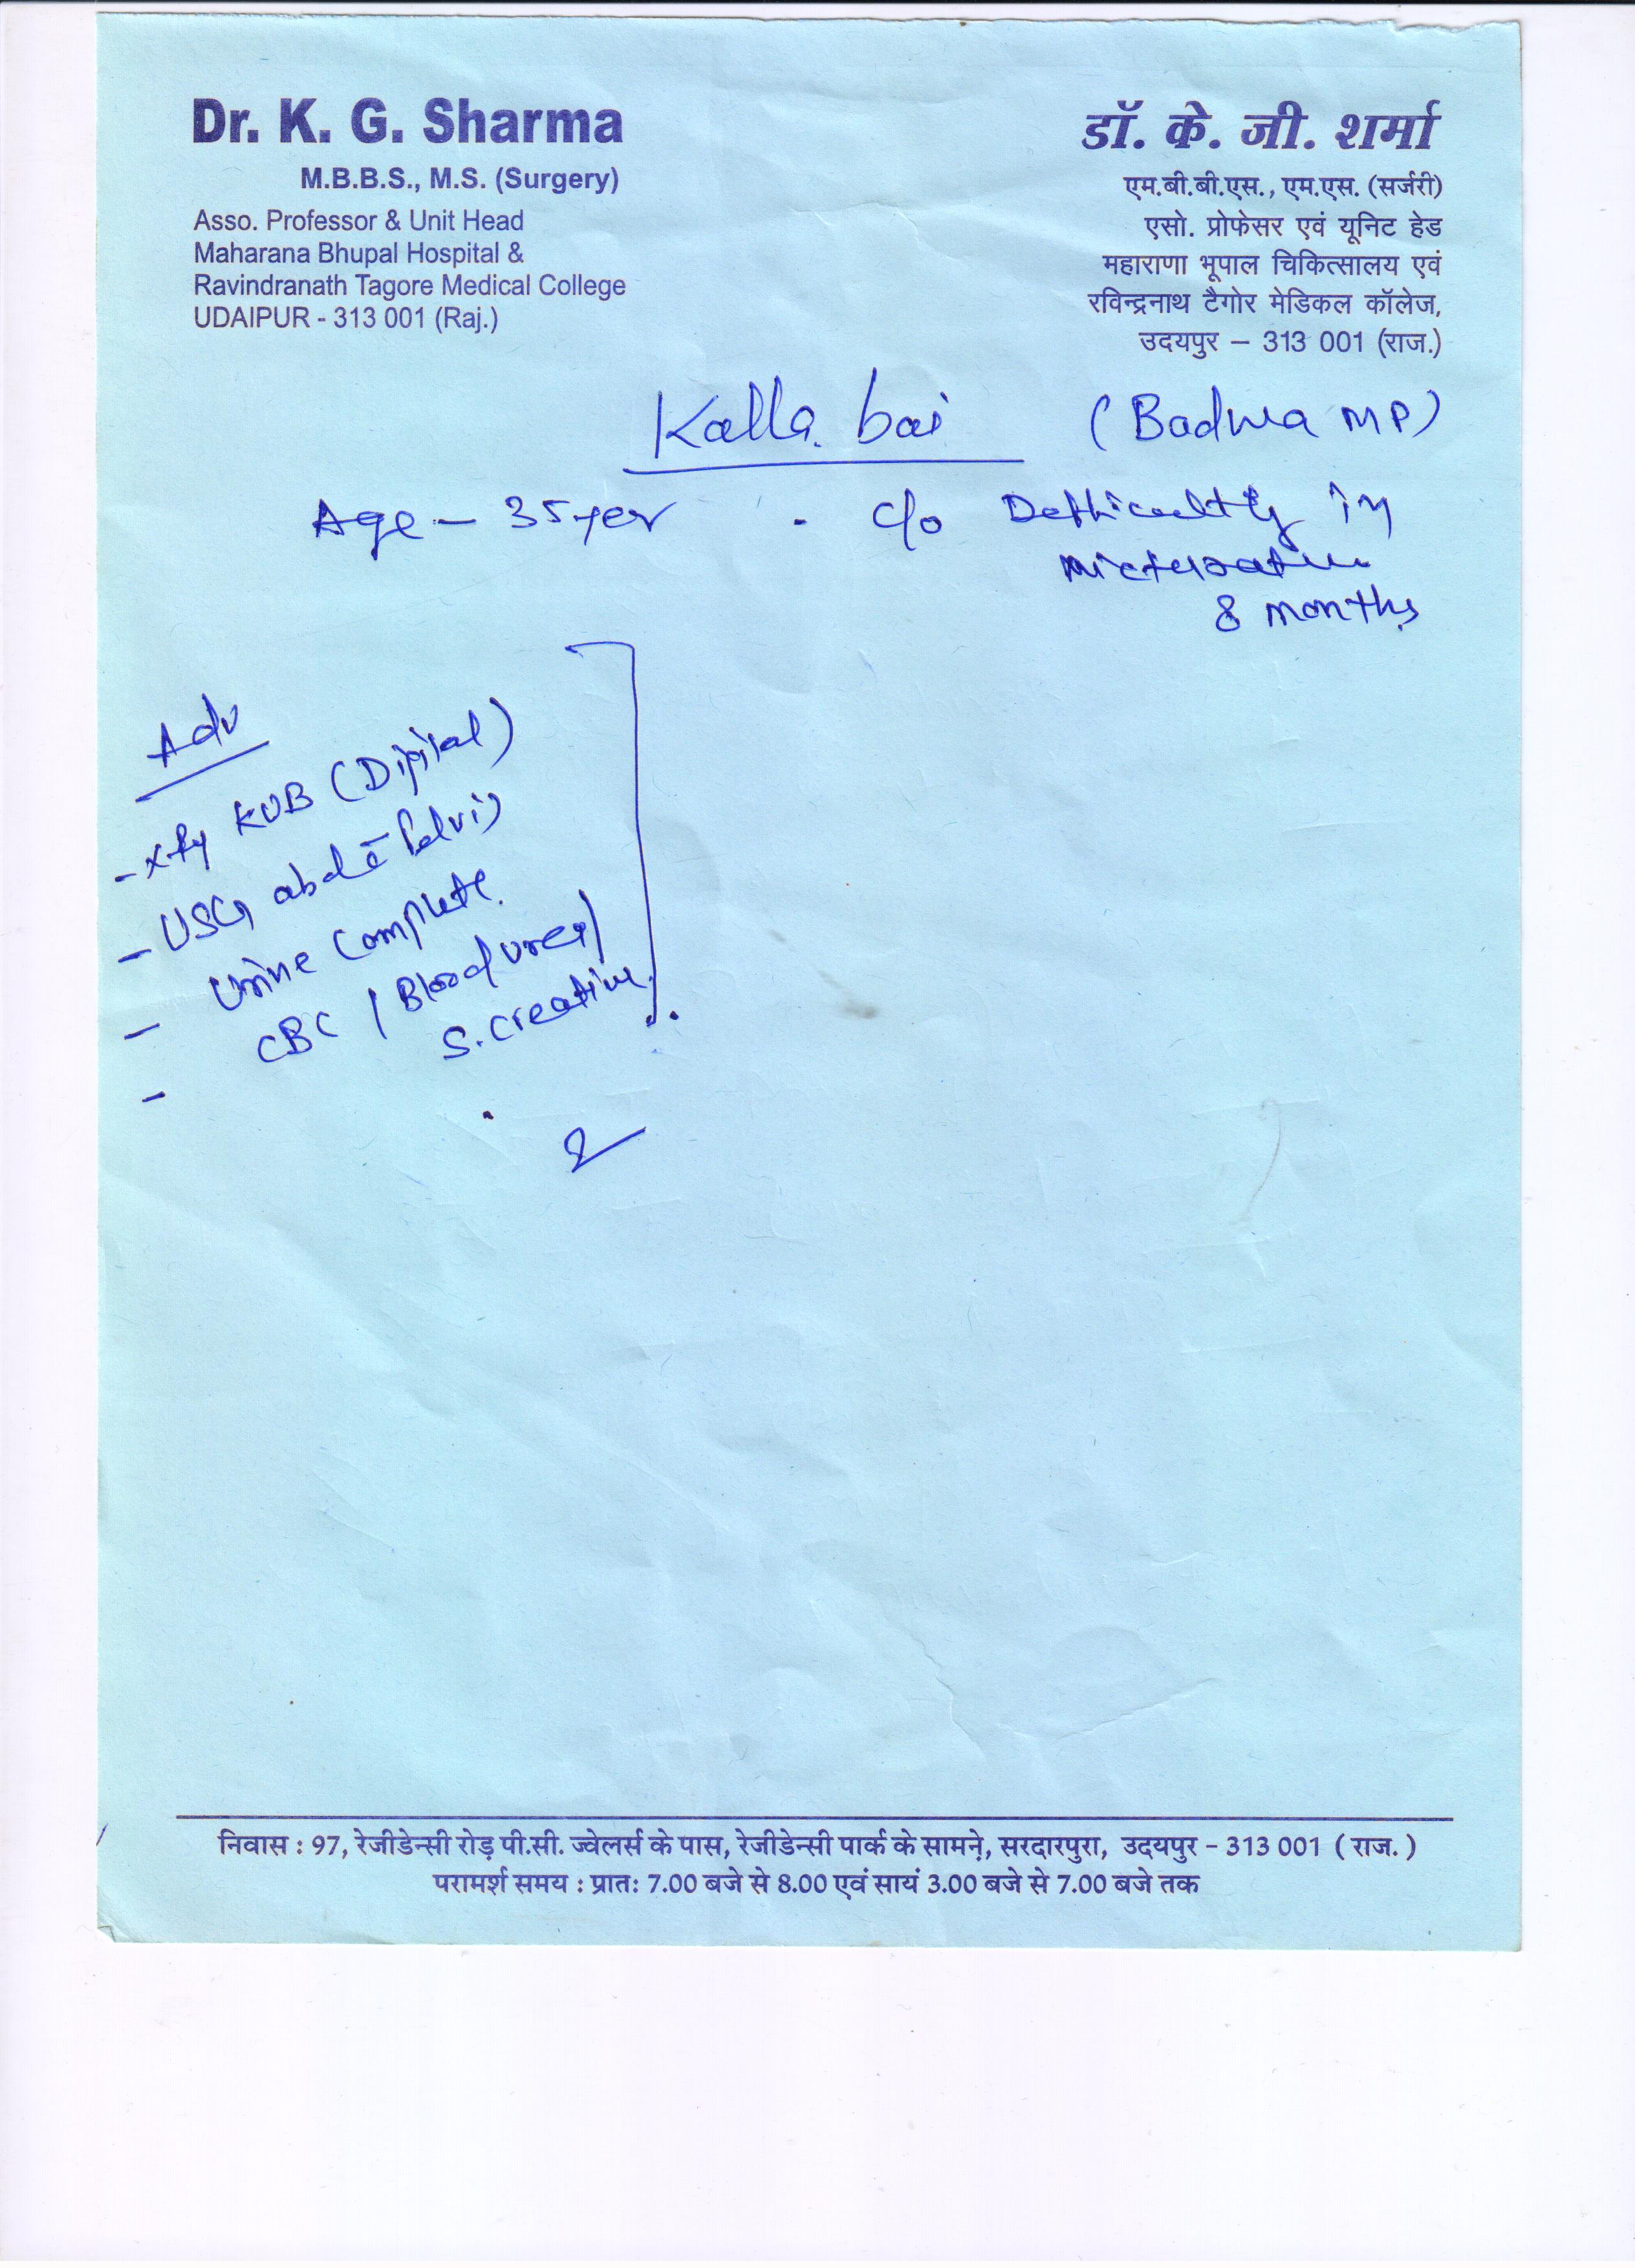 Dr. K. G. Sharma
M.B.B.S., M.S. (Surgery)
Asso. Professor & Unit Head
Maharana Bhupal Hospital &
Ravindranath Tagore Medical College
UDAIPUR - 313 001 (Raj.)
डॉ. के. जी. शर्मा
एम.बी.बी.एस., एम.एस. (सर्जरी)
एसो. प्रोफेसर एवं यूनिट हेड
महाराणा भूपाल चिकित्सालय एवं
रविन्द्रनाथ टैगोर मेडिकल कॉलेज,
उदयपुर – 313 001 (राज.)
Kalla bai (Badwa MP)
Age - 35 yer . c/o Defficultty in
micturation
8 months
Adv
- KUB (Digital)
- USG abd c̄ Pelvis
- Urine Complete.
- CBC / Blood urea /
S. Creatine
निवास : 97, रेजीडेन्सी रोड़ पी.सी. ज्वेलर्स के पास, रेजीडेन्सी पार्क के सामने, सरदारपुरा, उदयपुर - 313 001 ( राज. )
परामर्श समय : प्रातः 7.00 बजे से 8.00 एवं सायं 3.00 बजे से 7.00 बजे तक